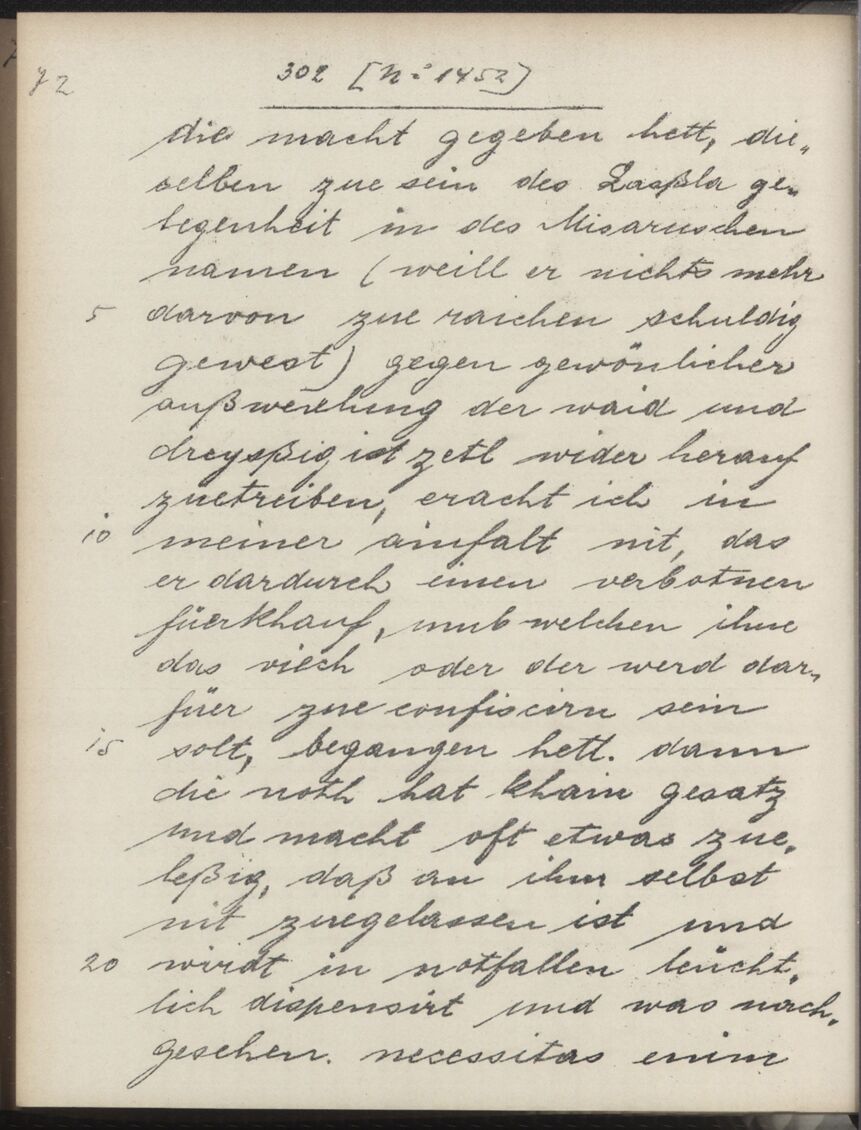 72
302 [No 1452]
die macht gegeben hett, die„
selben zue sein des Laaßla ge„
legenheit in des Misaruschen
namen (weill er nichts mehr
5 darvon zue raichen schuldig
gewest) gegen gewönlicher
außwexlung der waid und
dreyßigist zetl wider herauf
zuetreiben, eracht ich in
10 meiner ainfalt nit, das
er dardurch einen verbotnen
füerkhauf, umb welchen ihme
das viech oder der werd dar„
füer zue confiscirn sein
15 solt, begangen hett. dann
die noth hat khain gesatz
und macht oft etwas zue„
leßig, daß an ihm selbst
nit zuegelassen ist und
20 wirdt in notfallen leücht„
lich dispensirt und was nach„
gesehen. necessitas enim